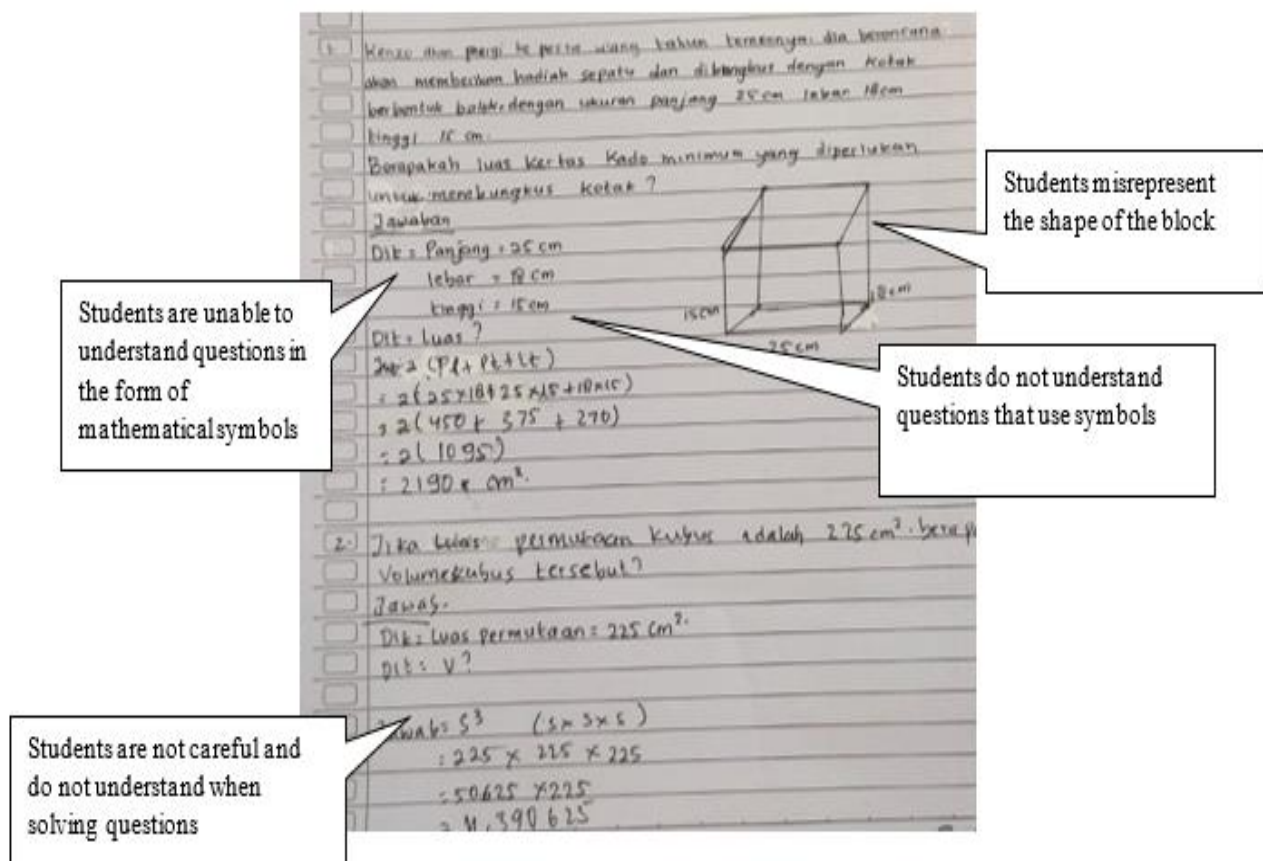 1. Kenzo akan pergi ke pesta ulang tahun temannya. dia berencana
akan memberikan hadiah sepatu dan dibungkus dengan kotak
berbentuk balok. dengan ukuran panjang 25 cm lebar 18 cm
tinggi 15 cm.
Berapakah luas kertas Kado minimum yang diperlukan
untuk membungkus kotak?
Jawaban
Dik = Panjang = 25 cm
lebar = 18 cm
tinggi = 15 cm
Dit = Luas?
2 (Pl + Pt + Lt)
= 2 (25 x 18 + 25 x 15 + 18 x 15)
= 2 (450 + 375 + 270)
= 2 (1095)
= 2190 cm².
15 cm
18 cm
25 cm
2. Jika Luas permukaan kubus adalah 225 cm².
Volume kubus tersebut?
Jawab.
Dik = Luas permukaan = 225 cm².
Dit = V?
Jawab = S³ (s x s x s)
= 225 x 225 x 225
= 50625 x 225
= 11.390625
Students misrepresent
the shape of the block
Students are unable to
understand questions in
the form of
mathematical symbols
Students do not understand
questions that use symbols
Students are not careful and
do not understand when
solving questions